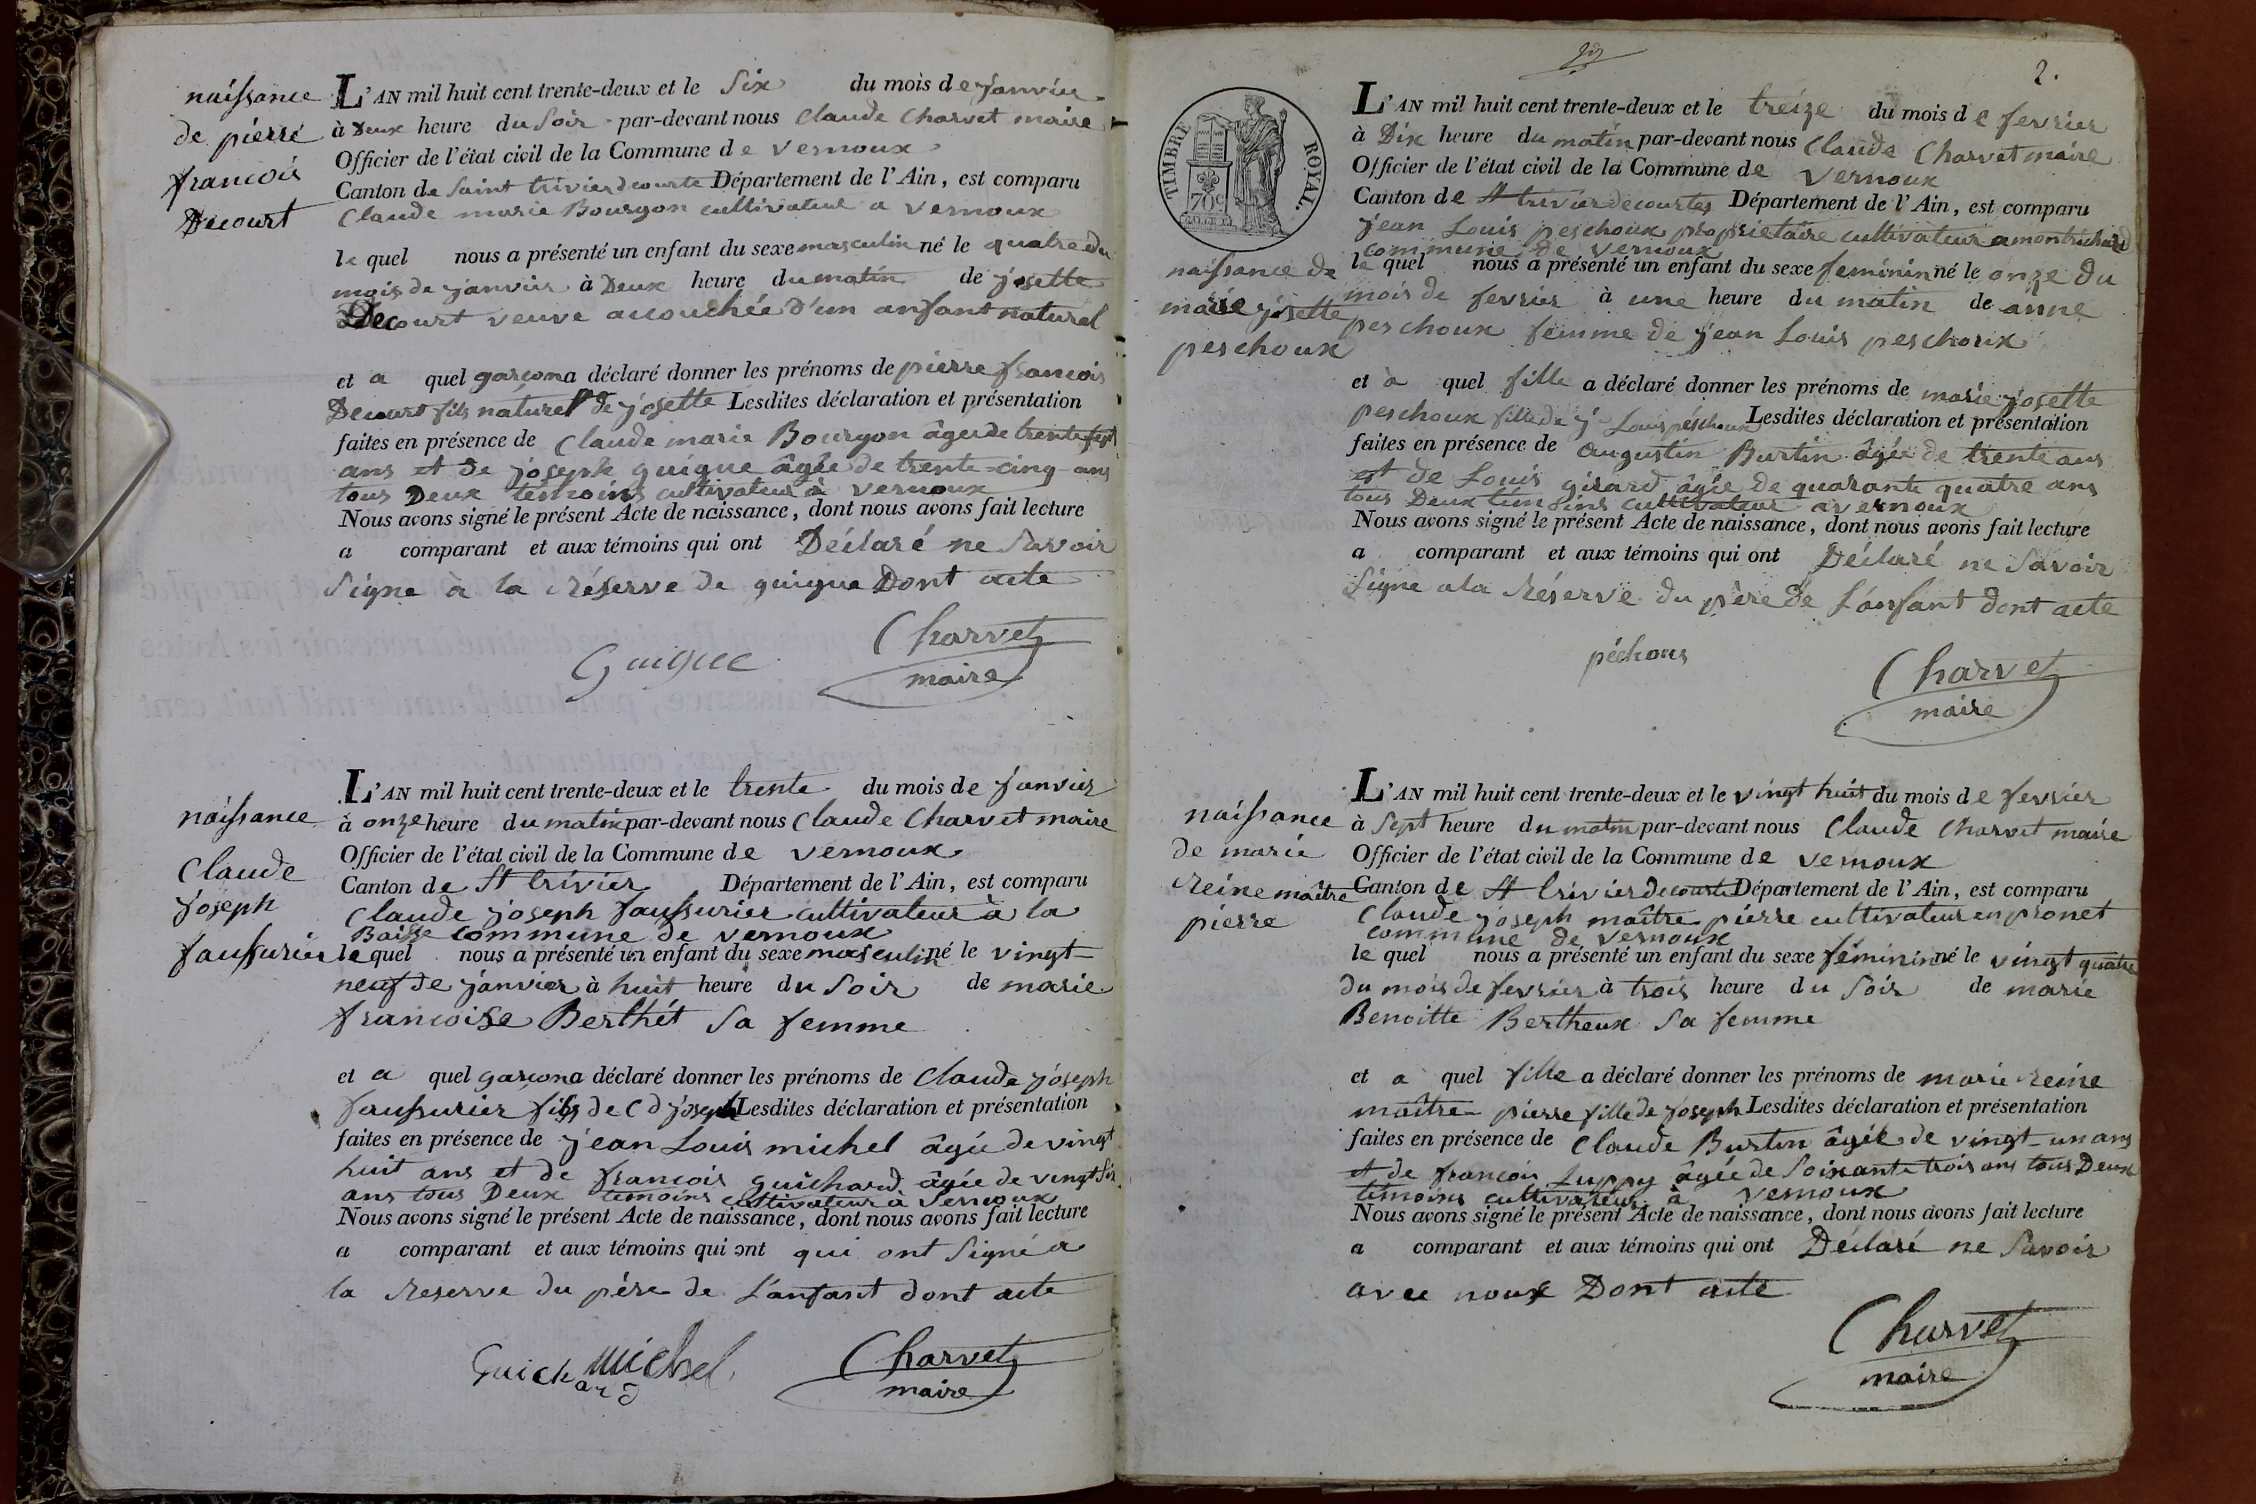 naissance
de pierre
francois
Decourt
L'AN mil huit cent trente-deux et le Six du mois de janvier
à Deux heure du Soir par-devant nous Claude Charvet maire
Officier de l'état civil de la Commune de vernoux
Canton de Saint trivier decourte Département de l'Ain, est comparu
Claude marie Bourgon cultivateur a vernoux
le quel nous a présenté un enfant du sexe masculin né le quatre du
mois de janvier à Deux heure du matin de josette
Decourt veuve acouchée d'un anfant naturel
et a quel garcon a déclaré donner les prénoms de pierre francois
Decourt fils náturel de josette Lesdites déclaration et présentation
faites en présence de Claude marie Bourgon âgée de trente sept
ans et de joseph guigue âgée de trente-cinq ans
tous Deux témoins cultivateur à vernoux
Nous avons signé le présent Acte de naissance, dont nous avons fait lecture
a comparant et aux témoins qui ont Déclaré ne Savoir
Signe à la réserve de guigue Dont acte
Guigue Charvet
maire
naissance
Claude
joseph
faussurier
L'AN mil huit cent trente-deux et le trente du mois de janvier
à onze heure du matin par-devant nous Claude Charvet maire
Officier de l'état civil de la Commune de vernoux
Canton de St trivier Département de l'Ain, est comparu
Claude joseph faussurier cultivateur à la
Baisse commune de vernoux
le quel nous a présenté un enfant du sexe masculin né le vingt-
neuf de janvier à huit heure du Soir de marie
francoise Berthét Sa femme
et a quel garcon a déclaré donner les prénoms de Claude joseph
faussurier fils de C d joseph Lesdites déclaration et présentation
faites en présence de jean Louis michel âgée de vingt
huit ans et de francois guichard âgée de vingt Six
ans tous Deux temoins cultivateur à Vernoux
Nous avons signé le présent Acte de naissance, dont nous avons fait lecture
a comparant et aux témoins qui ont qui ont Signé a
la reserve du pére de L'anfant dont acte
Guichard michel Charvet
maire
2.
TIMBRE ROYAL.
70c
L'AN mil huit cent trente-deux et le treize du mois de fevrier
à Dix heure du matin par-devant nous Claude Charvet maire
Officier de l'état civil de la Commune de vernoux
Canton de St trivier decourtes Département de l'Ain, est comparu
jean Louis peschoux proprietaire cultivateur a montrichard
commune de vernoux
naissance de
marie josette
peschoux
le quel nous a présenté un enfant du sexe feminin né le onze du
mois de fevrier à une heure du matin de anne
peschoux femme de jean Louis peschoux
et à quel fille a déclaré donner les prénoms de marie josette
peschoux fille de j- Louis péschoux Lesdites déclaration et présentation
faites en présence de augustin Burtin âgée de trente ans
et de Louis girard âgée de quarante quatre ans
tous Deux témoins cultivateur a vernoux
Nous avons signé le présent Acte de naissance, dont nous avons fait lecture
a comparant et aux témoins qui ont Déclaré ne Savoir
Signe a la réserve du père de L'anfant dont acte
péchous Charvet
maire
naissance
de marie
reine maître
pierre
L'AN mil huit cent trente-deux et le vingt huit du mois de fevrier
à Sept heure du matin par-devant nous Claude Charvet maire
Officier de l'état civil de la Commune de vernoux
Canton de St trivier decourte Département de l'Ain, est comparu
Claude joseph maître pierre cultivateur en pronet
commune de vernoux
le quel nous a présenté un enfant du sexe féminin né le vingt quatre
du mois de fevrier à trois heure du Soir de marie
Benoitte Bertheux Sa femme
et a quel fille a déclaré donner les prénoms de marie reine
maître pierre fille de joseph Lesdites déclaration et présentation
faites en présence de Claude Burtin âgée de vingt-un ans
et de francois Luppy âgée de Soixante trois ans tous Deux
témoins cultivateur à vernoux
Nous avons signé le présent Acte de naissance, dont nous avons fait lecture
a comparant et aux témoins qui ont Déclaré ne Savoir
avec nous Dont acte
Charvet
maire